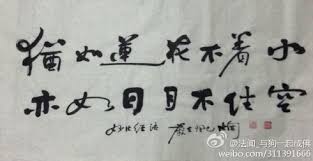 猶如蓮花不着水
亦如日月不住空
@法闻_与狗一起成佛
weibo.com/311391666